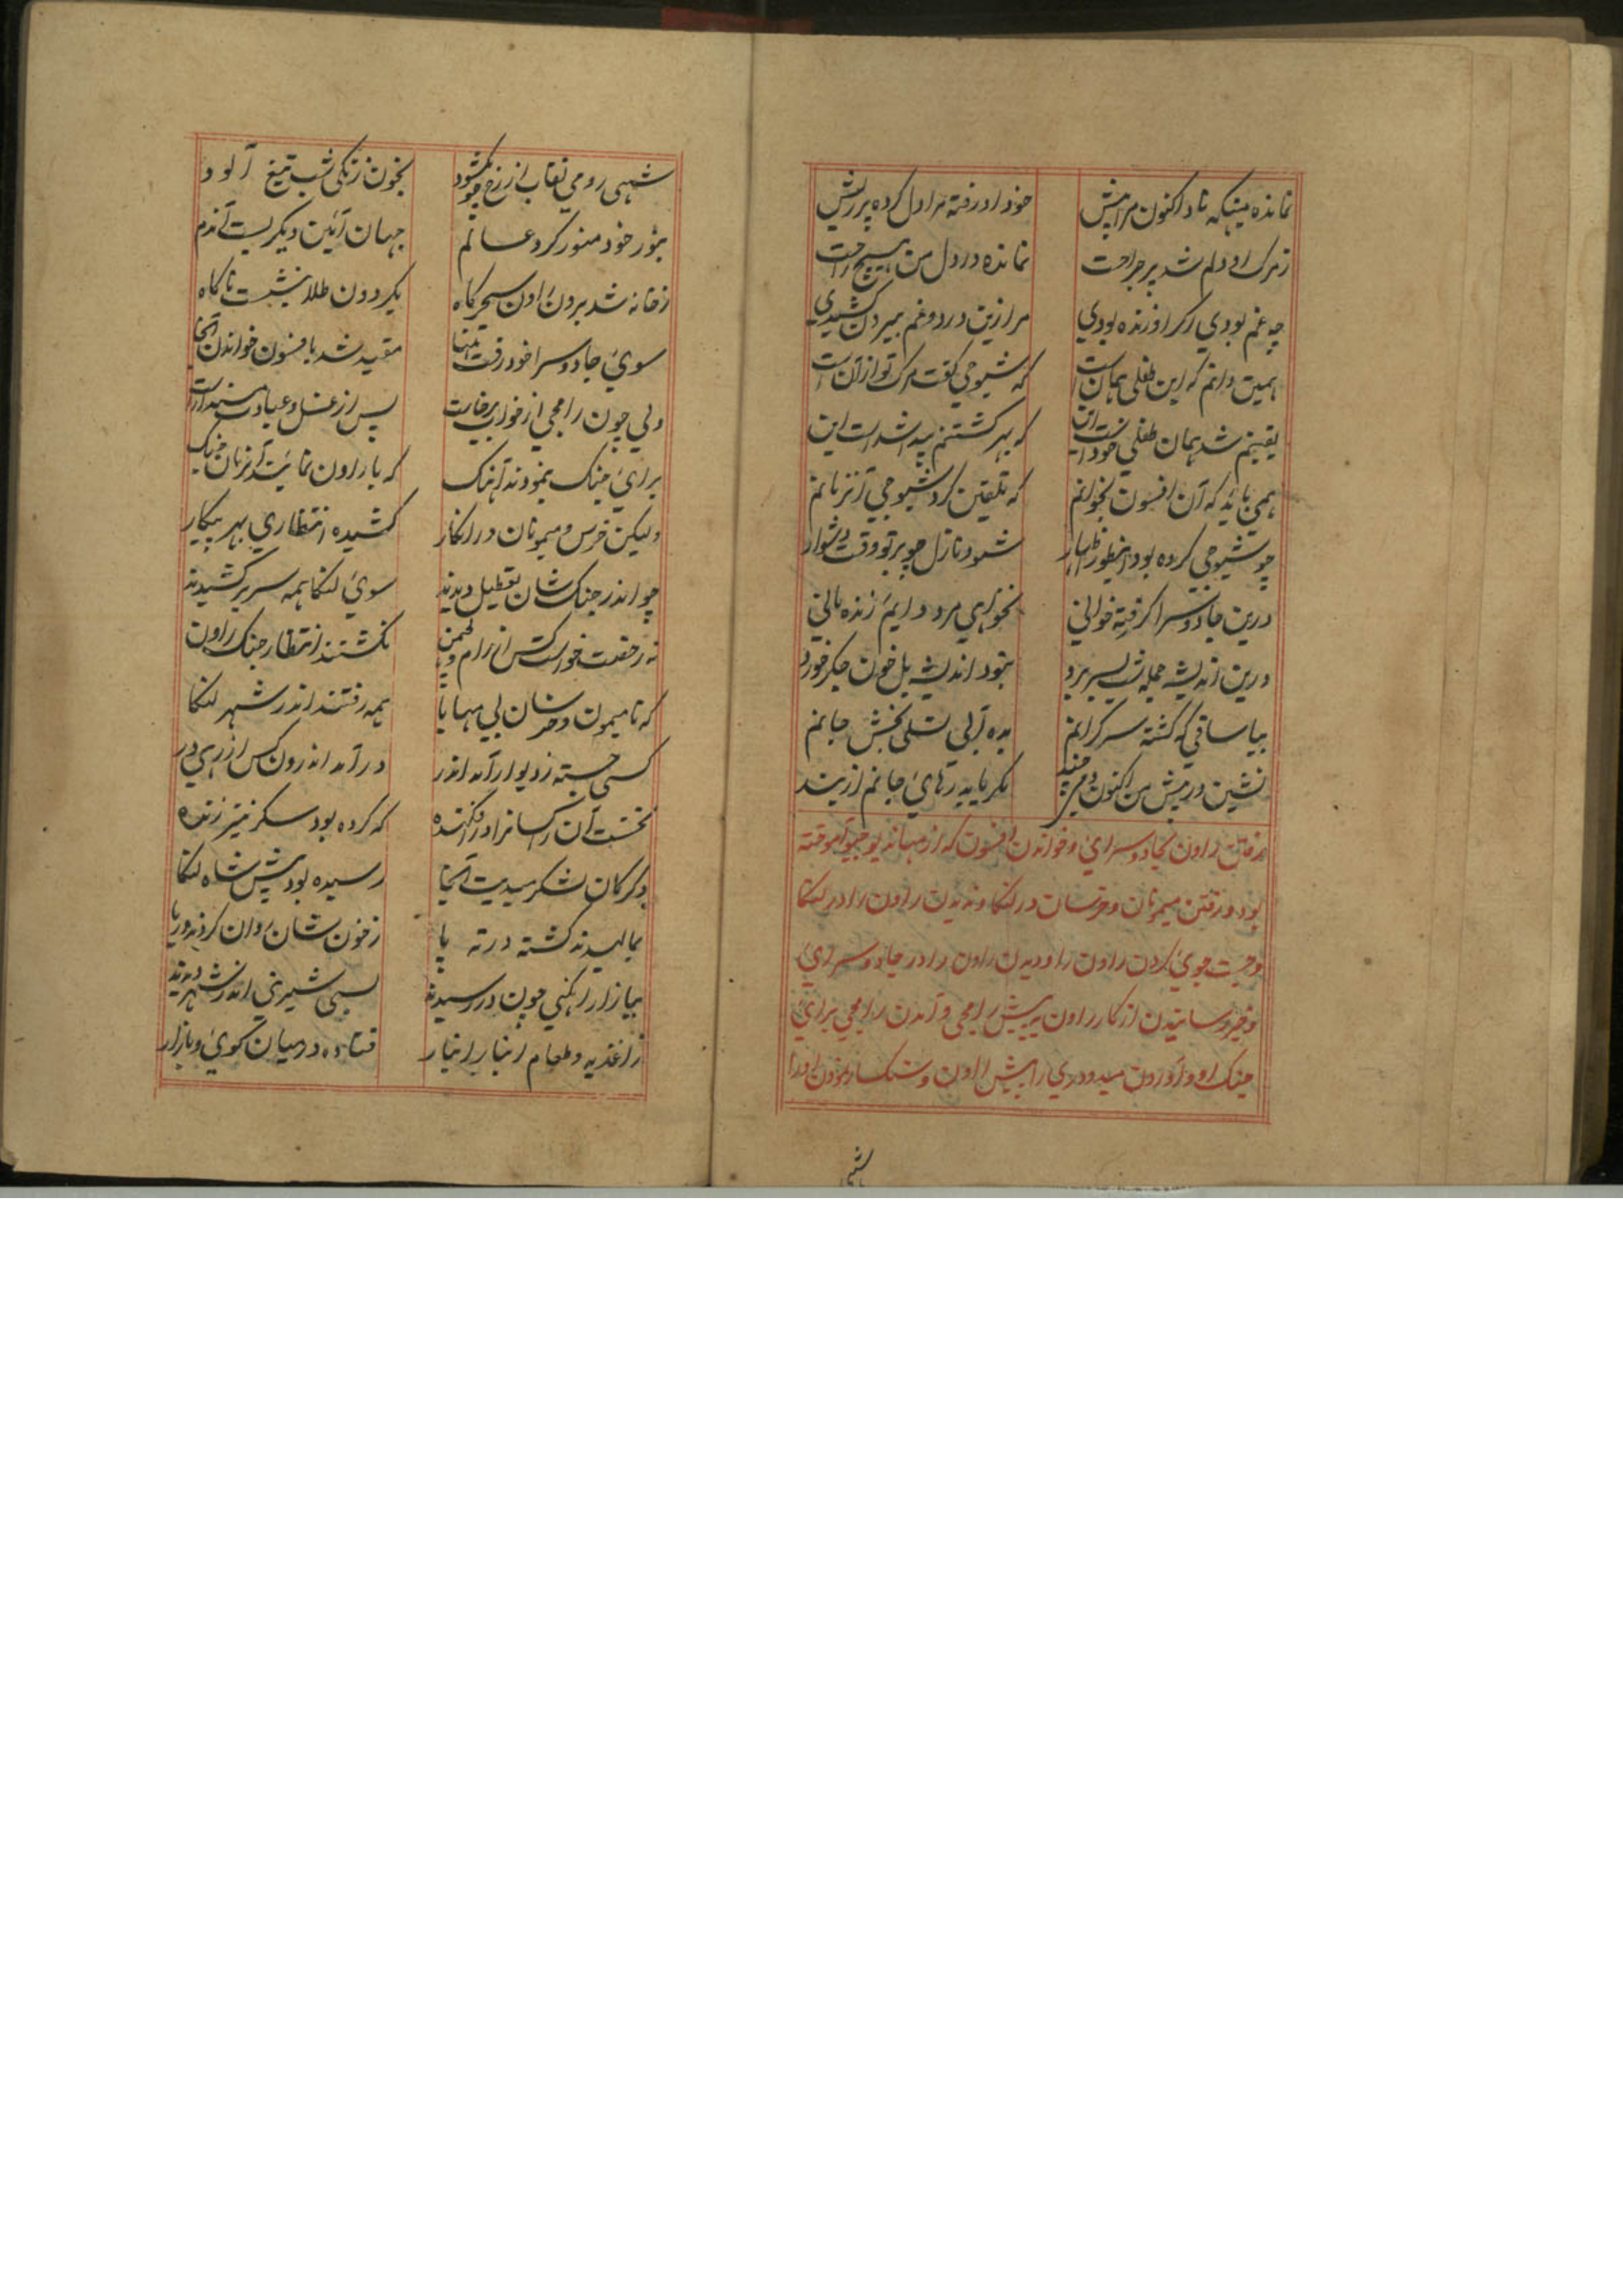 نمانده میکهناد اکنون مرا پیش خود او رفته مرا دل کرده پر ریش
ز مرک او دلم شد پر جراحت نمانده در دل من هیچ راحت
چه غم بودی اگر او زنده بودی مرا زین درد و غم بیرون کشیدی
همین دانم که این طفلی همان است که شیوجی گفت مرک تو ازان است
یقینم شد همان طفلی خود است این که بهر کشتنم پیدا شد است این
همی باید که آن افسون بخوانم که تلقین کرد شیوجی آنزمانم
چو شیوجی کرده بود اینطور اظهار شود نازل چو بر تو وقت دشوار
درین جادو سرا کر رفته خوانی نخواهی مرد دایم زنده مانی
درین اندیشه جمله شب بسر برد نبود اندیشه بل خون جکر خورد
بیا ساقی که کشته سر کرانم بده آبی تسلی بخش جانم
نشین در پیش من اکنون دمی چند مکر یابد رهائی جانم از بند
رفتن راون بجادو سرای و خواندن افسون که از مهادیوجیو آموخته
بود و رفتن میمونان و خرسان در لنکا و ندیدن راون را در لنکا
و جست جوی کردن راون را و دیدن راون را در جادو سرای
و خبر رسانیدن از کار راون به پیش رامجی و آمدن رامجی برای
جنک او و آوردن میدودری را پیش راون و سنکسار نمودن او را
شهی
شهی رومی نقاب از رخ چو بکشود بخون زنکی شب تیغ آلود
بنور خود منور کرد عالم جهان آئین دیکر بست آندم
ز خانه شد برون راون سحر کاه بکردون طلا بنشست ناکاه
سوی جادو سرا خود رفت تنها مقید شد بافسون خواندن آنجا
ولی چون رامجی از خواب برخاست پس از غسل و عبادت مسند آراست
برای جنک بنمودند آهنک که با راون نمائیم آنزمان جنک
ولیکن خرس و میمونان در انکار کشیده انتظاری بهر پیکار
چو اندر جنک شان تعطیل دیدند سوی لنکا همه سر بر کشیدند
نه رخصت خواست کس از رام و لچمن نکشتند انتظار جنک راون
که تا میمون و خرسان بی مهابا همه رفتند اندر شهر لنکا
کسی جسته ز دیوار آمد اندر در آمد اندرون کس از ره در
نخست آن راکسانرا در فکنده که کرده بود سکر نیز زنده
دکر کان لشکر میدیت آنجا رسیده بود پیش شاه لنکا
بمالیدند کشته در ته پا ز خون شان روان کردند دریا
ببازار راهکنی چون در رسیدند بسی شیرینی اندر شهر دیدند
ز اغذیه و طعام انبار انبار فتاده در میان کوی و بازار